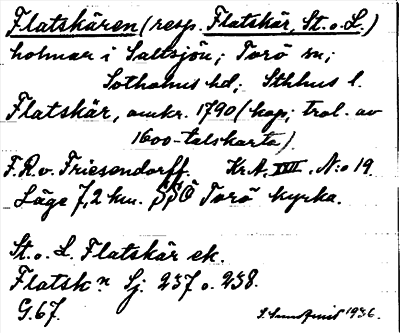 Flatskären (resp. Flatskär, St. o. L.)
holmar i Saltsjön; Torö sn;
Sotholms hd; Sthlms l.
Flatskär, omkr. 1790 (kop; trol. av
1600-talskarta).
F. R. v. Friesendorff. Kr.A. XVII, N:o 19
Läge 7,2 km. SSÖ Torö kyrka.
St. o. L. Flatskär ek.
Flatsk:n Sj. 237 o. 238.
G. 67.
1936.